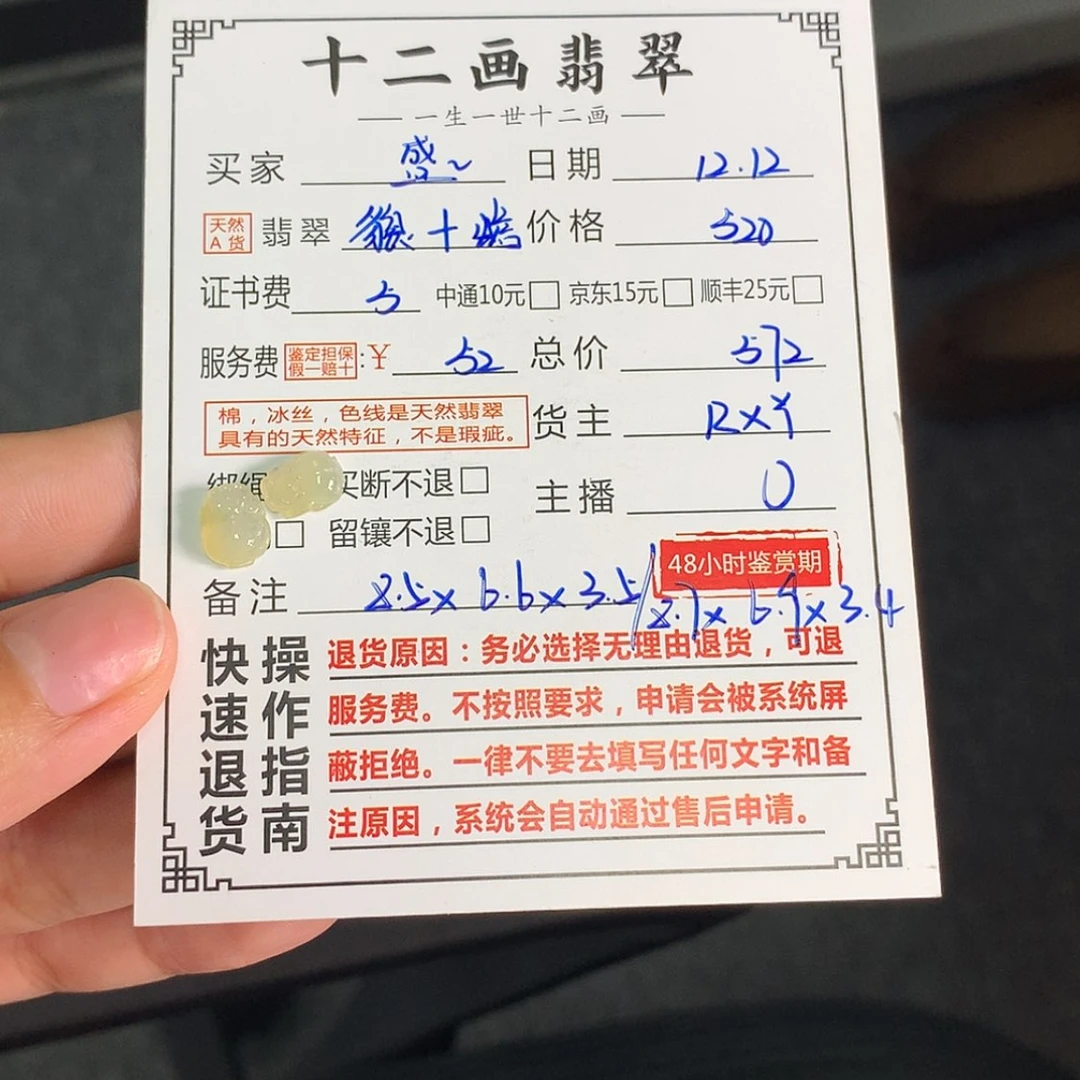 十二画翡翠
一生一世十二画
买家 盛~ 日期 12.12
天然A货 翡翠 貔貅 价格 520
证书费 5 中通10元 京东15元 顺丰25元
服务费 鉴定担保 假一赔十 :¥ 52 总价 572
棉，冰丝，色线是天然翡翠
具有的天然特征，不是瑕疵。
货主 RXY
绑绳 买断不退
主播 U
留镶不退
48小时鉴赏期
备注 8.5x6.6x3.5/8.7x6.9x3.4
快速退货操作指南
退货原因：务必选择无理由退货，可退
服务费。不按照要求，申请会被系统屏
蔽拒绝。一律不要去填写任何文字和备
注原因，系统会自动通过售后申请。